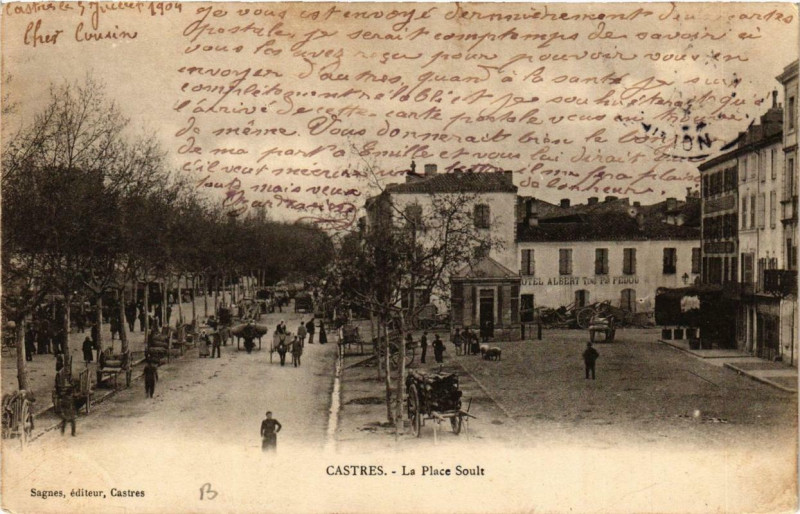 Castres le 5 Juillet 1904
Cher Cousin
Je vous est envoyé dernnièrement deux cartes
postales je serait comptemps de savoir si
vous les avez reçu pour pouvoir vous en
envoyer d'autres, quand à la santé je suis
complètement rétabli et je souhaiterait qu'à
l'arrivé de cette carte postale vous en
de même. Vous donnerait bien le bonjour
de ma part à Émile et vous lui dirait
s'il veut m'écrire une lettre il me fera plaisir
mais veux de bonheur
HOTEL ALBERT
CASTRES. - La Place Soult
Sagnes, éditeur, Castres
B